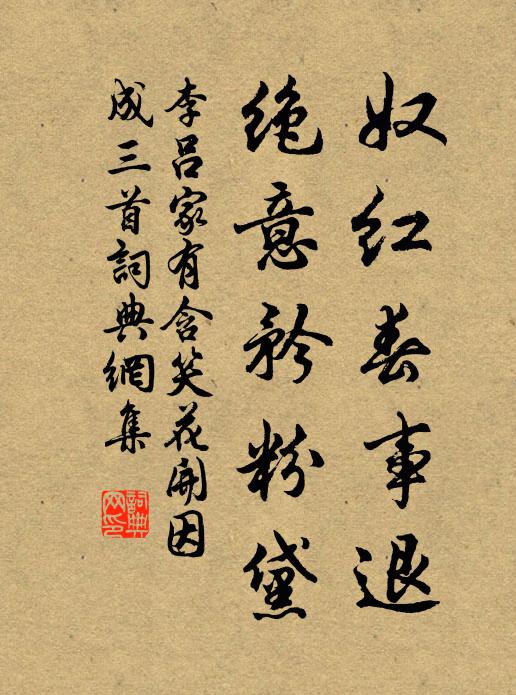 奴红春事退
绝意矜粉黛
李吕家有含笑花开因
成三首詞典網集
詞典
網印